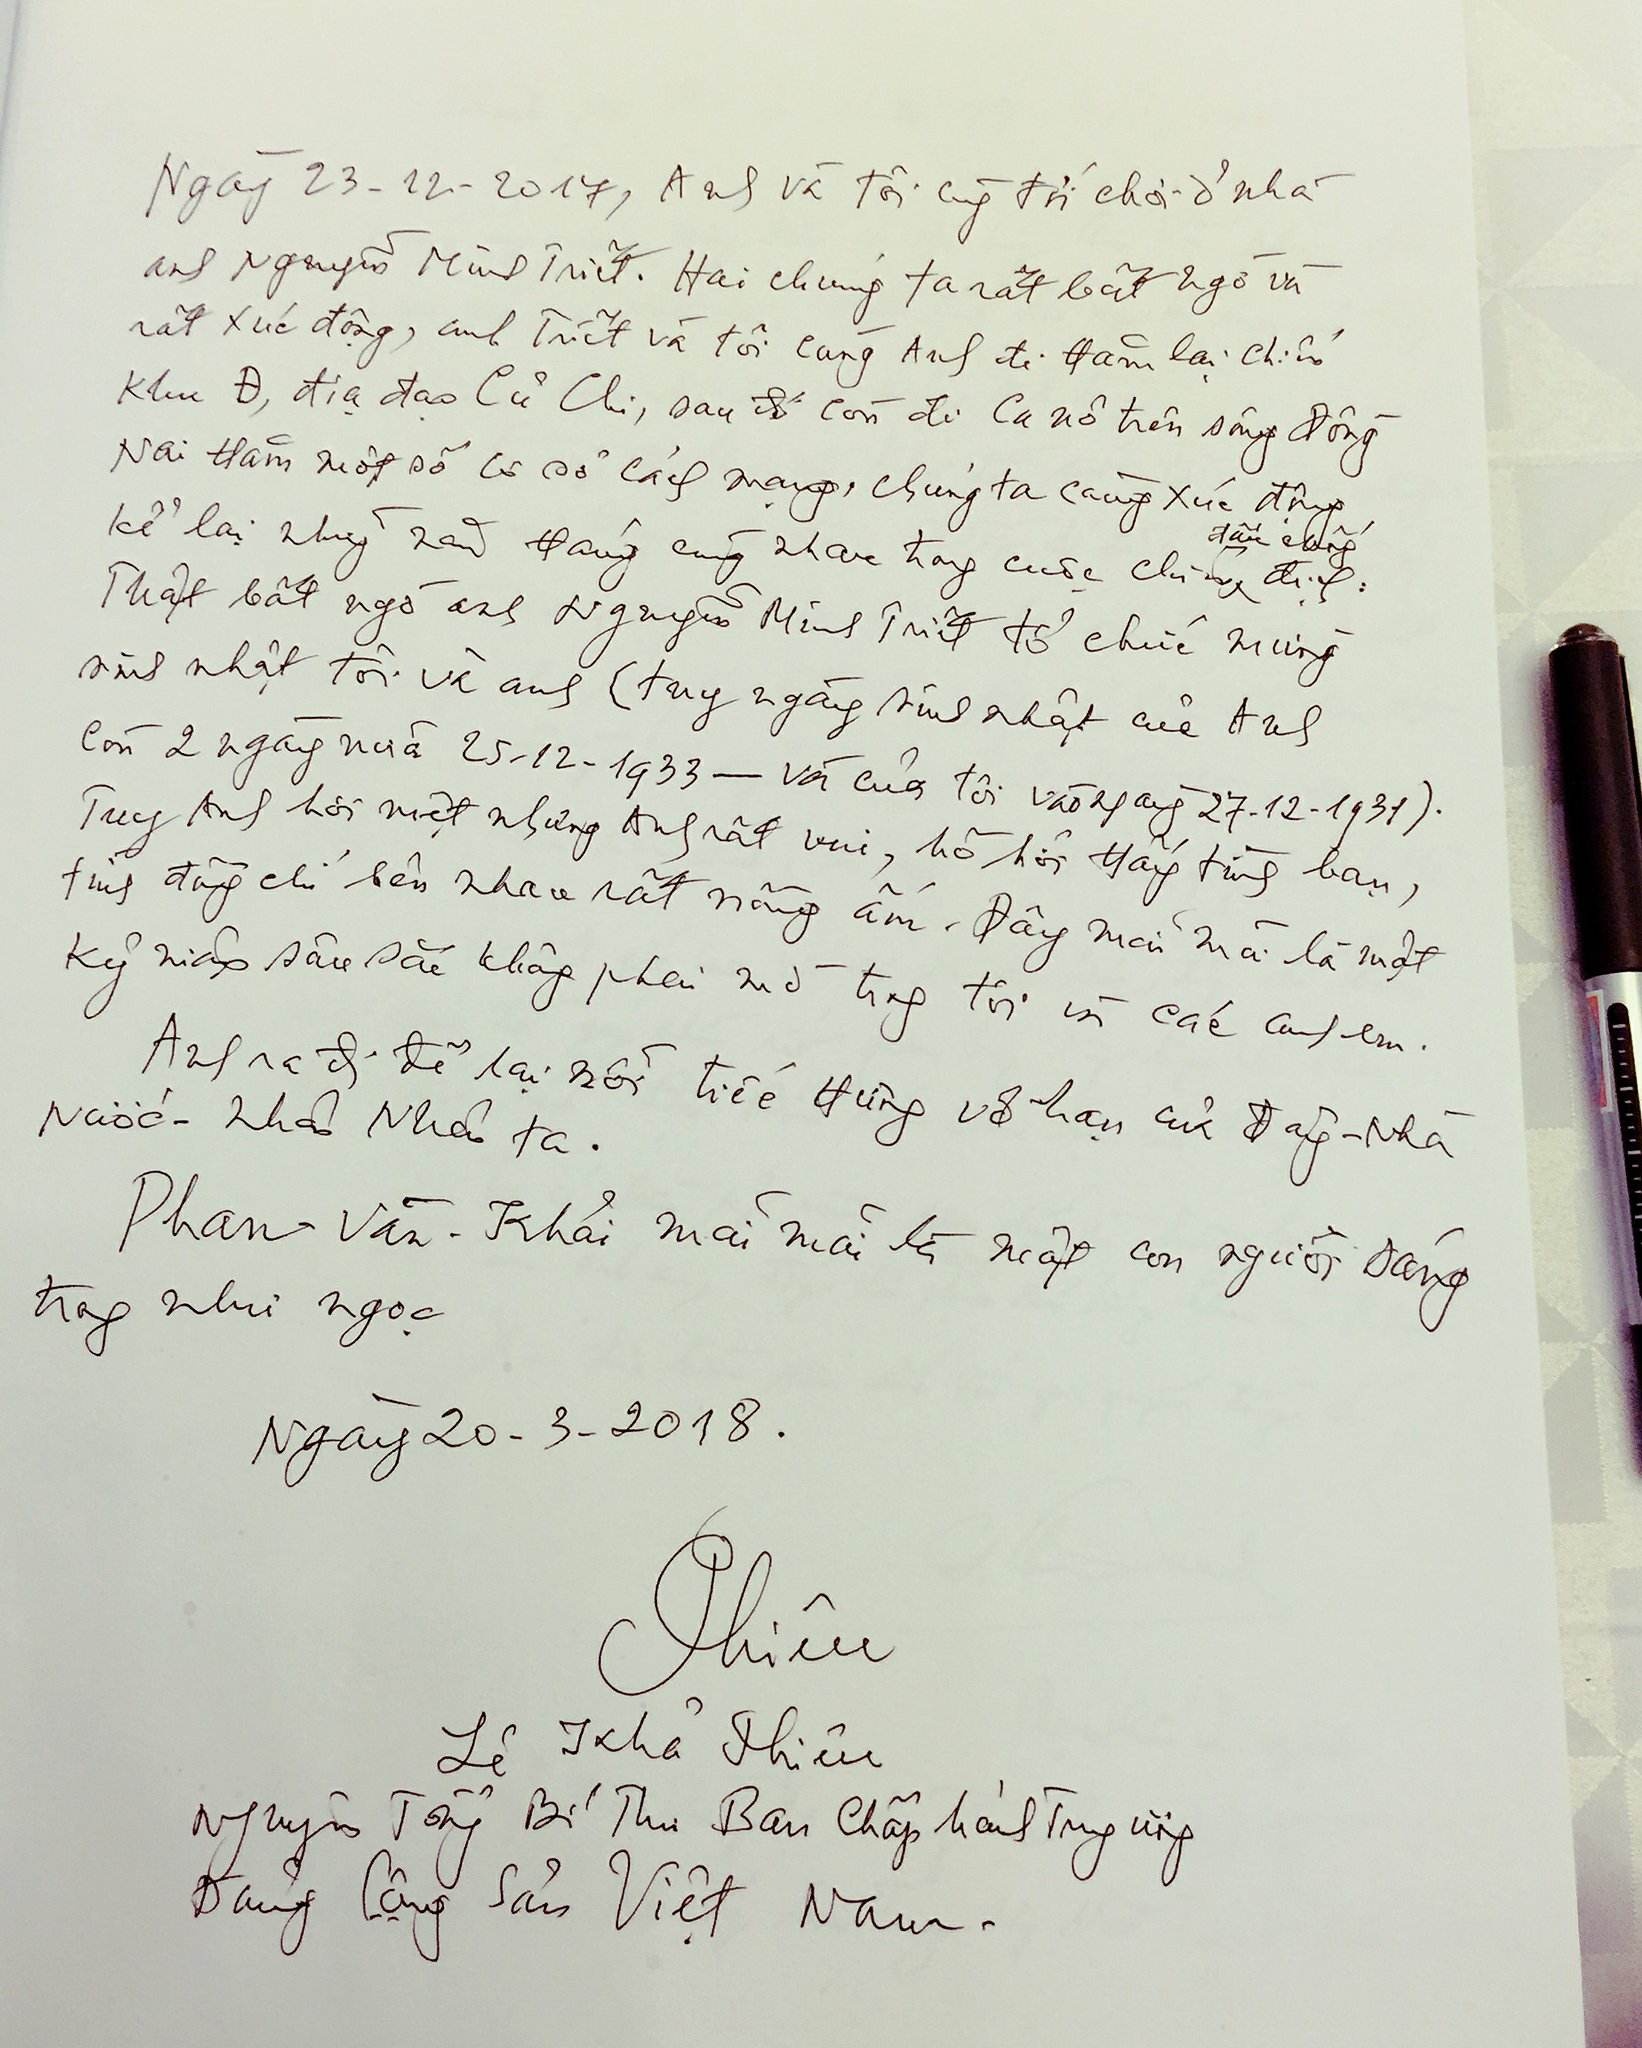 Ngày 23-12-2017, Anh và tôi cùng tới chơi ở nhà
anh Nguyễn Minh Triết. Hai chúng ta rất bất ngờ và
rất xúc động, anh Triết và tôi cùng Anh đi thăm lại chiến
khu Đ, địa đạo Củ Chi, sau đó còn đi ca nô trên sông Đồng
Nai thăm một số cơ sở cách mạng, chúng ta càng xúc động
kể lại những năm tháng cùng nhau trong cuộc chiến đấu chống địch.
Thật bất ngờ anh Nguyễn Minh Triết tổ chức mừng
sinh nhật tôi và anh (tuy ngày sinh nhật của Anh
còn 2 ngày nữa 25-12-1933 — và của tôi vào ngày 27-12-1931).
Tuy Anh hơi mệt nhưng Anh rất vui, hồ hởi thấy tình bạn,
tình đồng chí bên nhau rất nồng ấm. Đây mãi mãi là một
kỷ niệm sâu sắc không phai mờ trong tôi và các anh em.
Anh ra đi để lại nỗi tiếc thương vô hạn của Đảng - Nhà
nước - Nhân Nhân ta.
Phan - Văn - Khải mãi mãi là một con người Đáng
trong như ngọc
Ngày 20-3-2018.
Phiêu
Lê Khả Phiêu
Nguyên Tổng Bí Thư Ban Chấp hành Trung ương
Đảng Cộng Sản Việt Nam.